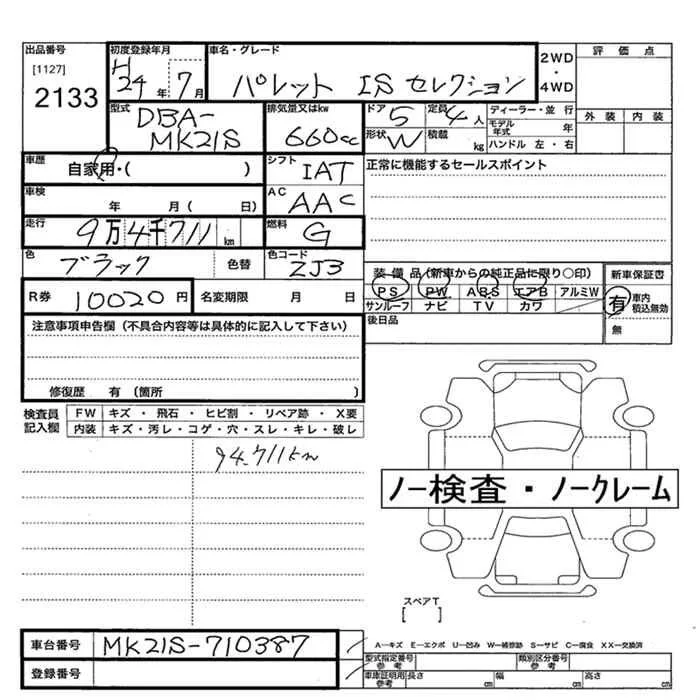 出品番号
[1127]
2133
初度登録年月
H24年 7月
車名・グレード
パレット ISセレクション
2WD
・
4WD
評価点
外装 内装
型式
DBA-
MK21S
排気量又はkw
660cc
ドア 5
定員 4人
形状 W
積載 kg
ディーラー・並行
モデル年式 年
ハンドル 左・右
車歴
自家用・( )
シフト
IAT
正常に機能するセールスポイント
車検
年 月 ( 日)
AC
AAC
走行
9万4千711km
燃料
G
色
ブラック 色替
色コード
ZJ3
装備品(新車からの純正品に限り○印)
PS PW ABS エアB アルミW
サンルーフ ナビ TV カワ
新車保証書
有 車内積込無効
無
R券
10020円
名変期限 月 日
後日品
注意事項申告欄(不具合内容等は具体的に記入して下さい)
修復歴 有(箇所 )
検査員記入欄
FW キズ・飛石・ヒビ割・リペア跡・X要
内装 キズ・汚レ・コゲ・穴・スレ・キレ・破レ
94.711km
ノー検査・ノークレーム
スペアT
[ ]
車台番号
MK21S-710387
登録番号
A―キズ E―エクボ U―凹み W―補修跡 S―サビ C―腐食 XX―交換済
型式指定番号 参考
類別区分番号 参考
車庫証明用 参考
長さ cm 幅 cm 高さ cm